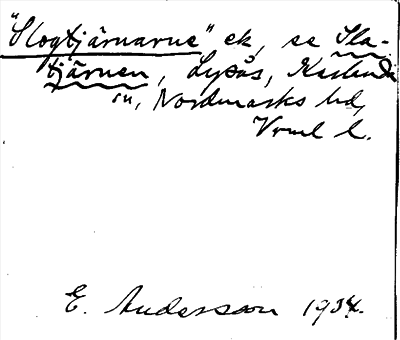 "Slogtjärnarne" ek, se Sla-
tjärnen, Lysås, Karlanda
sn, Nordmarks hd,
Vrml l.
E. Andersson 1934.